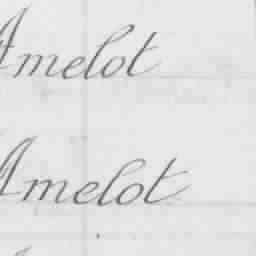 Amelot
Amelot